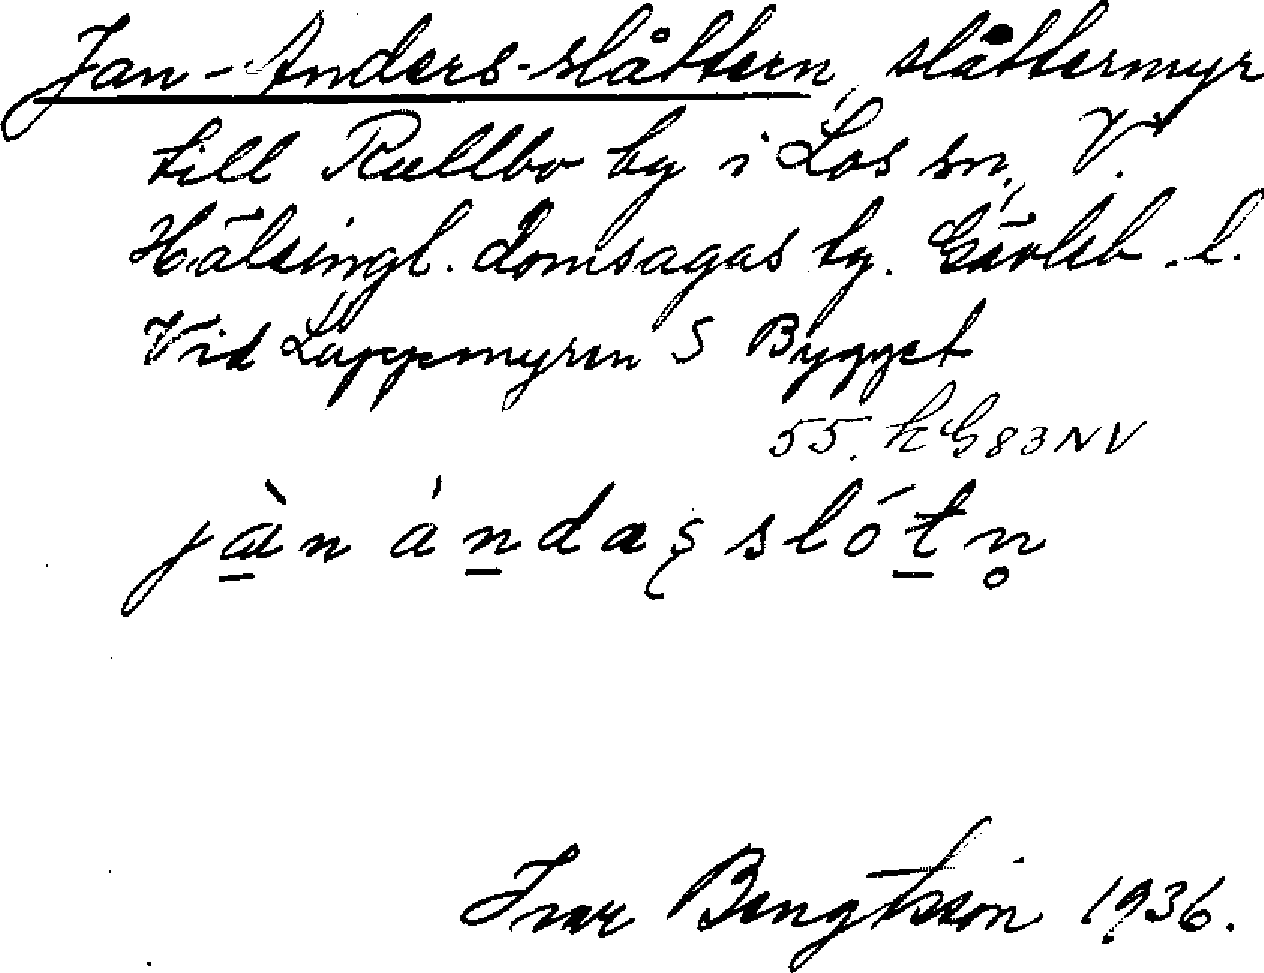 Jan-Anders-slåttern, slåttermyr
till Rullbo by i Los sn, V.
Hälsingl. domsagas tg. Gävleb. l.
Vid Lappmyren S Bygget
55. k G 83 NV
jàn ándaʂ slótn̥
Ivar Bengtsson 1936.